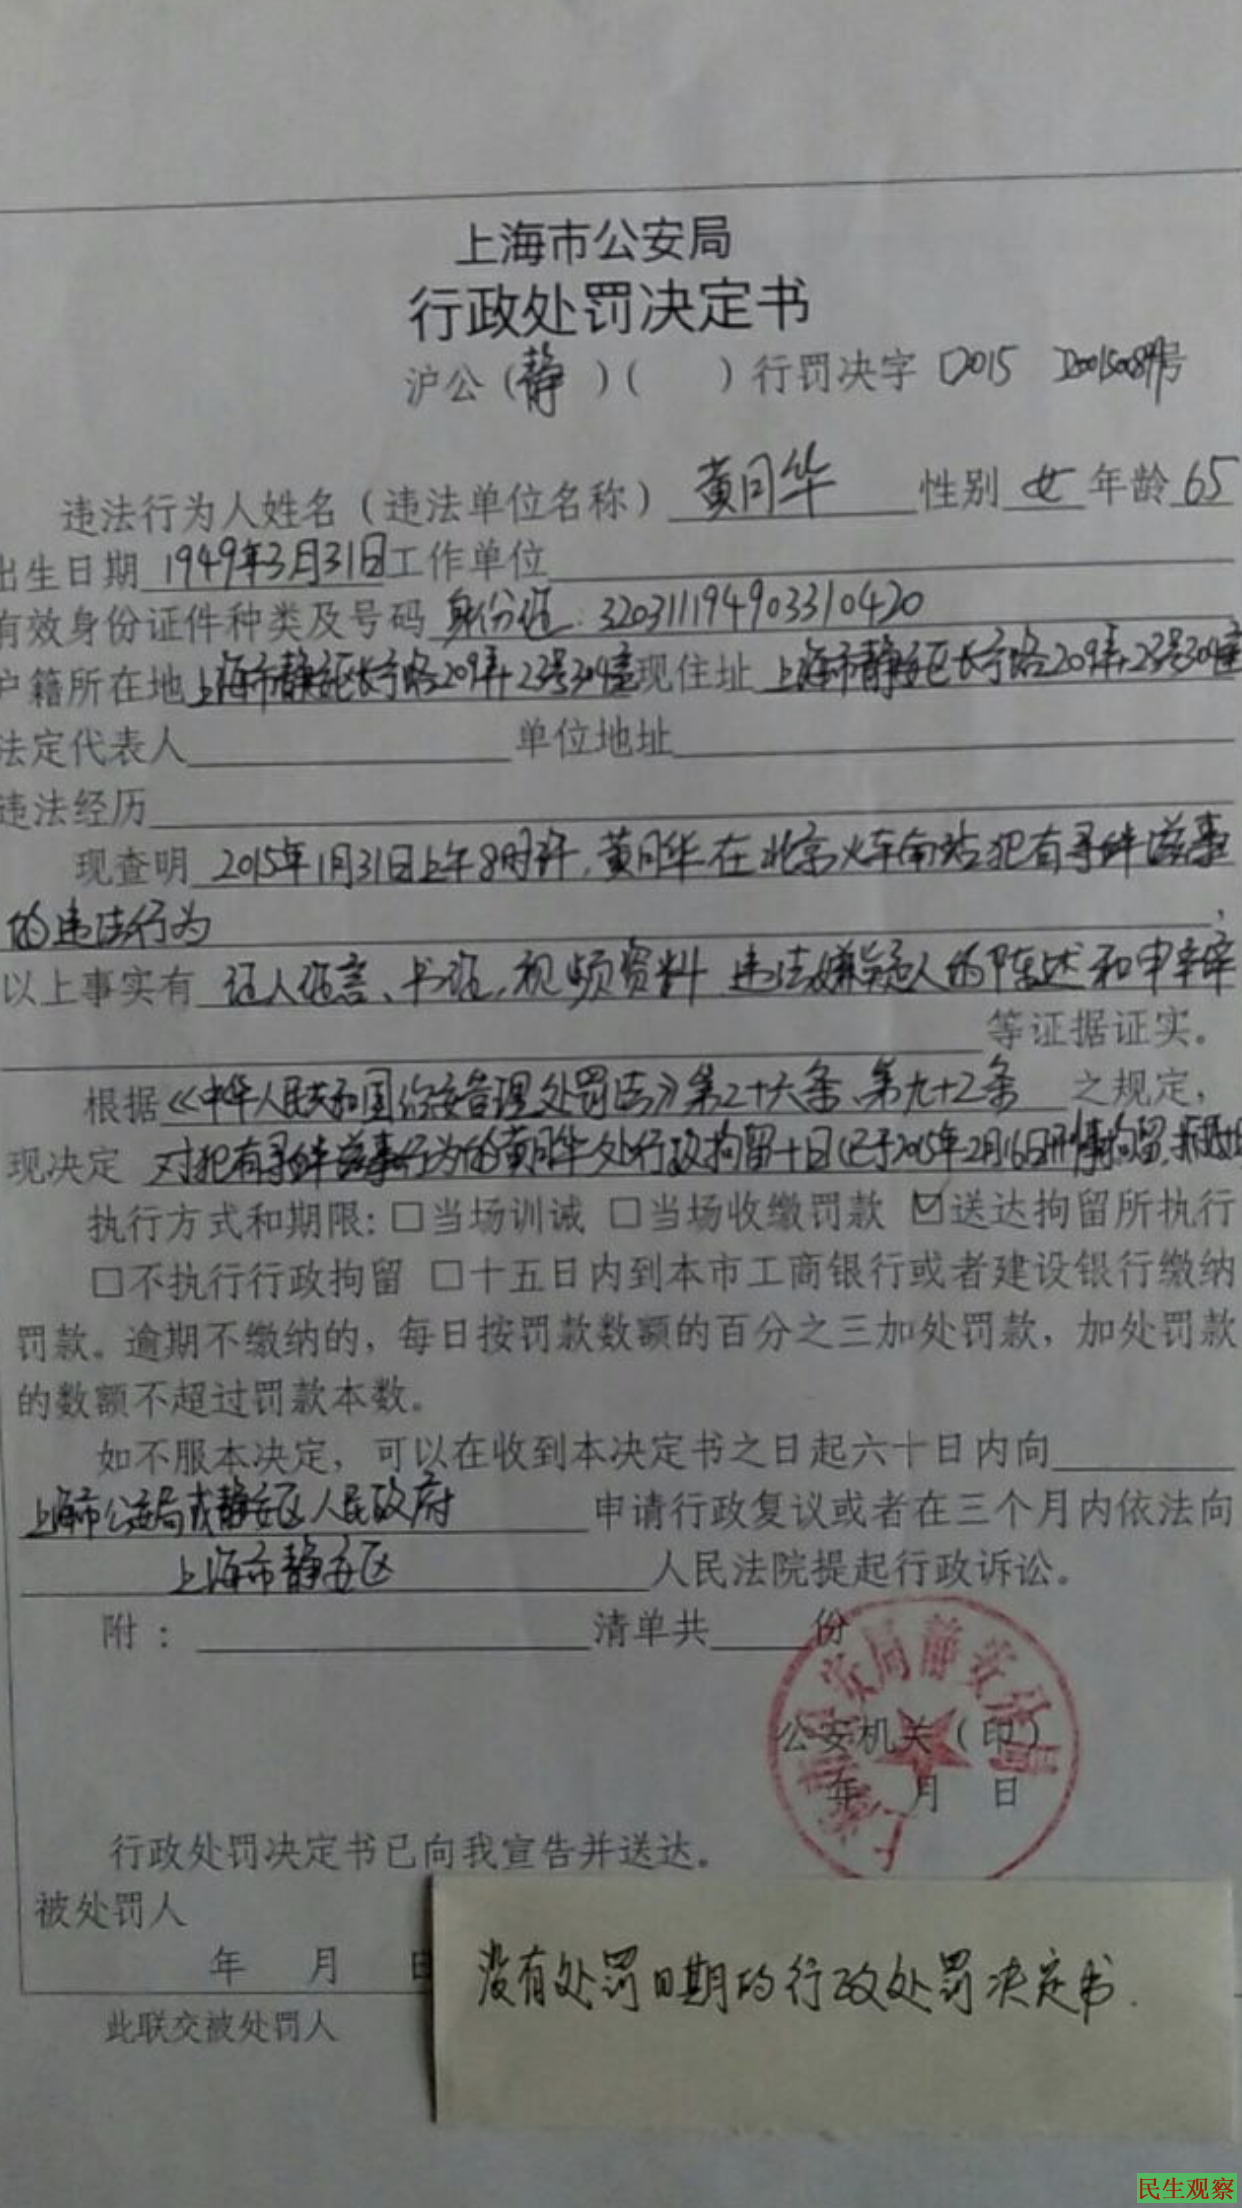 上海市公安局
行政处罚决定书
沪公(静)( )行罚决字 2015 号
违法行为人姓名(违法单位名称) 黄同华 性别 女 年龄 65
出生日期 1949年3月31日 工作单位
有效身份证件种类及号码 身份证:320311194903310420
户籍所在地 上海市静安区长宁路209弄23号304室 现住址 上海市静安区长宁路209弄23号304室
法定代表人 单位地址
违法经历
现查明 2015年1月31日上午8时许,黄同华在北京火车南站犯有寻衅滋事
的违法行为,
以上事实有 证人证言、书证、视频资料 违法嫌疑人的陈述和申辩
等证据证实。
根据《中华人民共和国治安管理处罚法》第二十六条、第九十二条 之规定,
现决定 对犯有寻衅滋事行为的黄同华处行政拘留十日(已于2015年2月16日刑事拘留,
执行方式和期限:□当场训诫 □当场收缴罚款 ☑送达拘留所执行
□不执行行政拘留 □十五日内到本市工商银行或者建设银行缴纳
罚款。逾期不缴纳的,每日按罚款数额的百分之三加处罚款,加处罚款
的数额不超过罚款本数。
如不服本决定,可以在收到本决定书之日起六十日内向
上海市公安局或静安区人民政府 申请行政复议或者在三个月内依法向
上海市静安区 人民法院提起行政诉讼。
附: 清单共 份
上海市公安局静安分局
公安机关(印)
年 月 日
行政处罚决定书已向我宣告并送达。
被处罚人
年 月 日
没有处罚日期的行政处罚决定书.
此联交被处罚人
民生观察